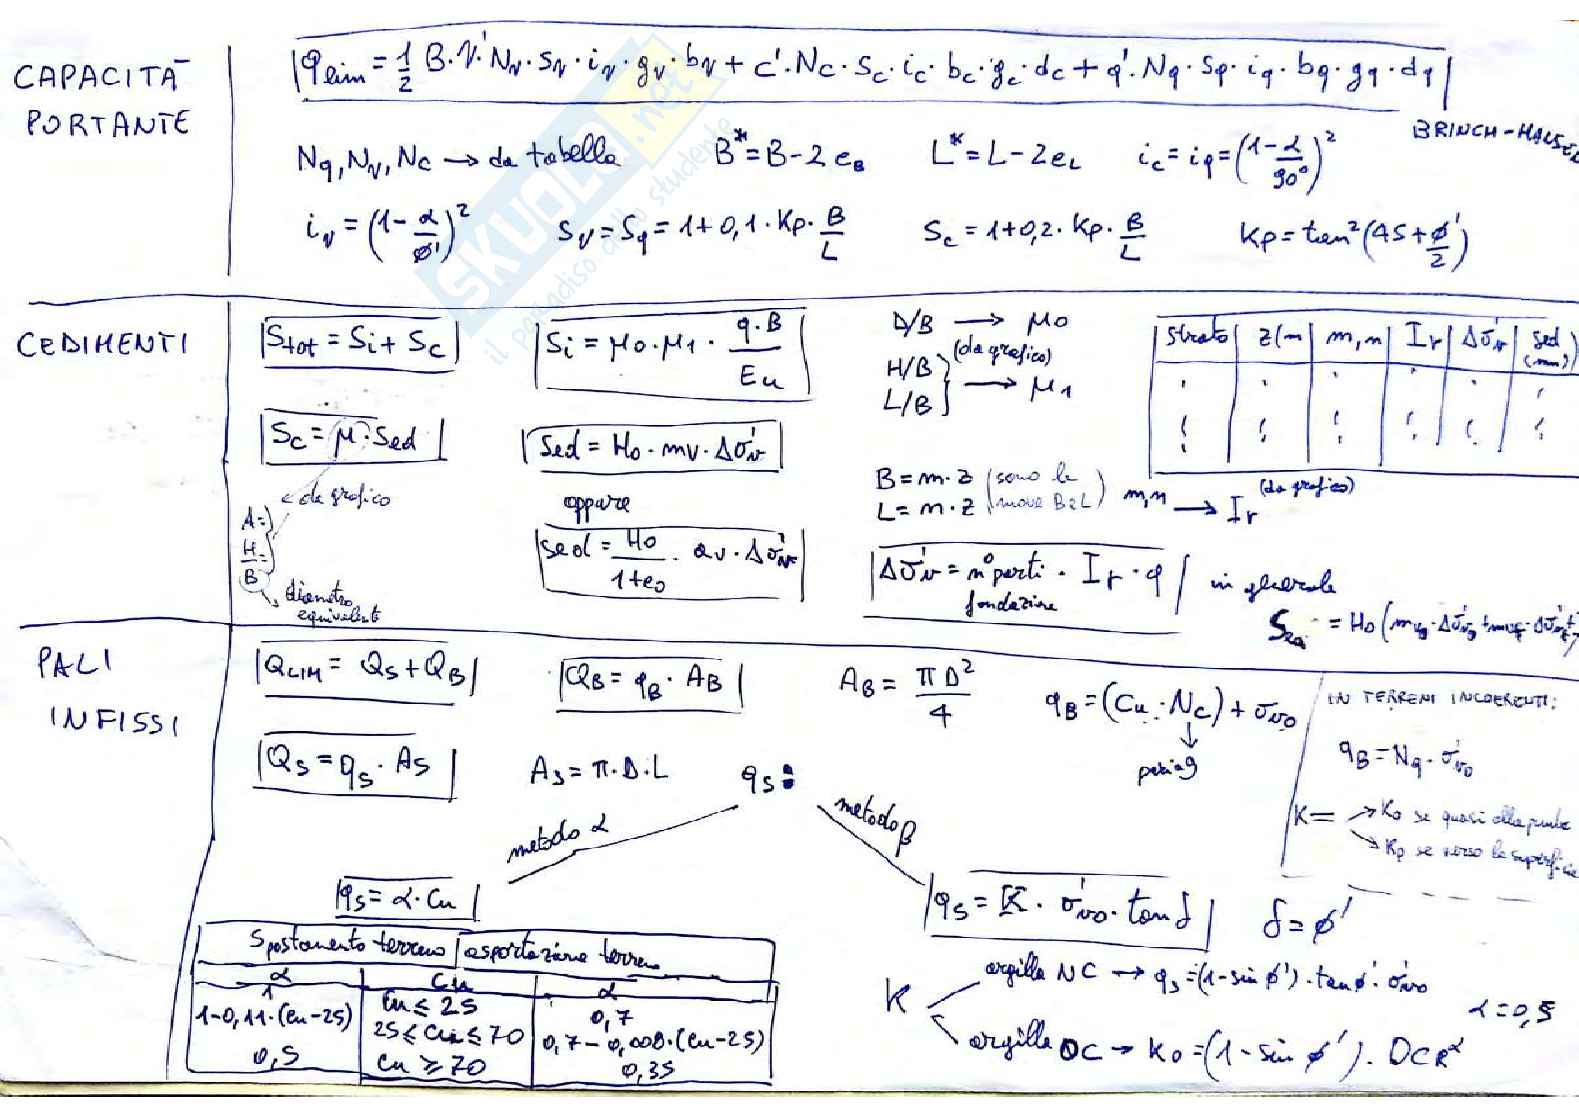 CAPACITÀ PORTANTE
q_lim = 1/2 B·γ'·Nγ·sγ·iγ·gγ·bγ + c'·Nc·sc·ic·bc·gc·dc + q'·Nq·sq·iq·bq·gq·dq
BRINCH-HANSEN
Nq, Nγ, Nc → da tabella
B* = B - 2 e_B
L* = L - 2 e_L
ic = iq = (1-α/90°)²
iγ = (1 - α/ø')²
sγ = sq = 1+0,1·Kp·B/L
sc = 1+0,2·Kp·B/L
Kp = tan²(45+ø'/2)
CEDIMENTI
Stot = Si + Sc
Si = μ0·μ1·q·B/Eu
D/B → μ0
(da grafico)
H/B
L/B } → μ1
strato | z(m | m,n | Ir | Δσ'v | Sed (mm)
Sc = μ·Sed
← da grafico
A=
H=
B
diametro equivalente
Sed = H0·mv·Δσ'v
oppure
Sed = H0/(1+e0) · av·Δσ'v
B = m·z (sono le
L = n·z nuove B e L)
m,n → Ir
(da grafico)
Δσ'v = n° parti fondazione · Ir · q
in generale
= H0 (mv·Δσ'v + mv·Δσ'v +
PALI INFISSI
Q_LIM = Qs + QB
QB = qB · AB
AB = π D²/4
qB = (Cu·Nc) + σv0
↓
pari a 9
IN TERRENI INCOERENTI:
qB = Nq·σ'v0
K = → K0 se quasi alla punta
→ Kp se verso la superficie
Qs = qs·As
As = π·D·L
qs:
metodo α
metodo β
qs = α·Cu
qs = K·σ'v0·tanδ
δ = ø'
Spostamento terreno | asportazione terreno
α | Cu | α
1 | Cu ≤ 25 | 0,7
1-0,11·(Cu-25) | 25 ≤ Cu ≤ 70 | 0,7-0,008·(Cu-25)
0,5 | Cu ≥ 70 | 0,35
K
argilla NC → qs = (1-sin ø')·tanø'·σ'v0
argilla OC → K0 = (1-sin ø')·OCR^α
α = 0,5
SKUOLA.net
il paradiso dello studente